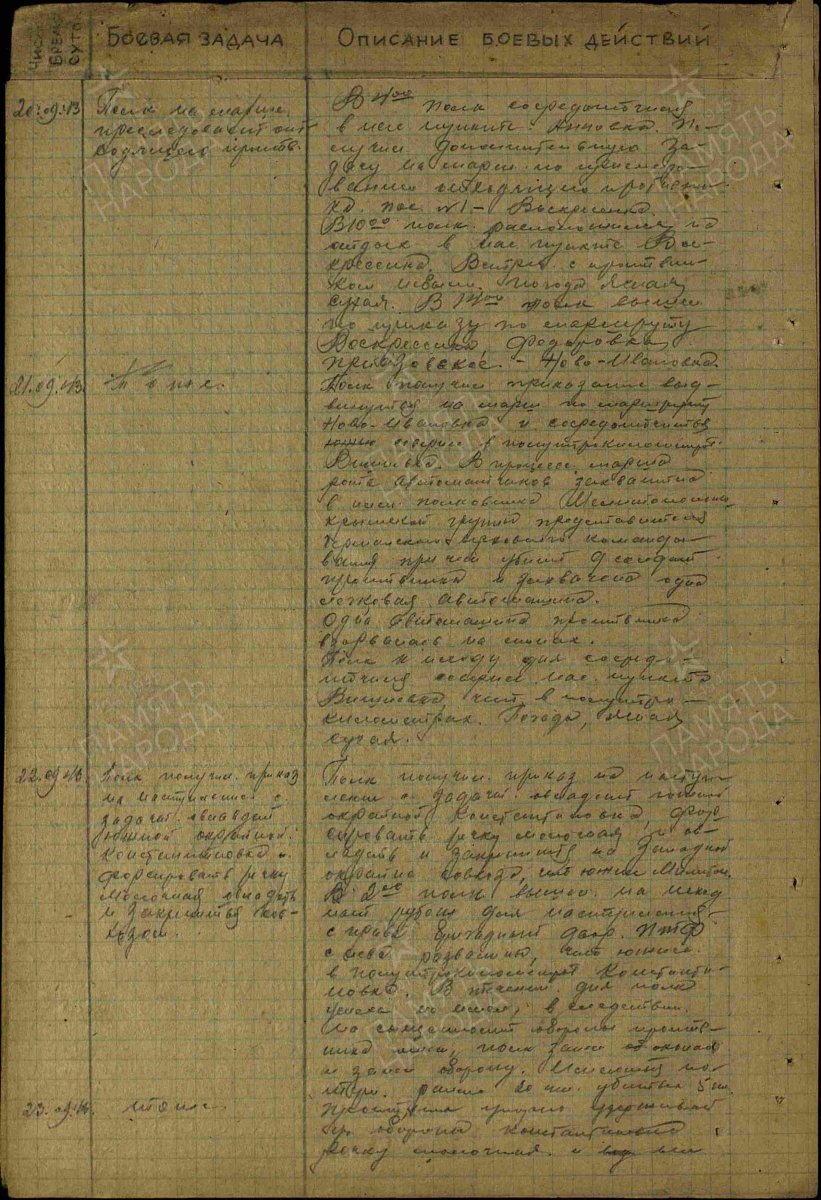 Число
Время
Суток
БОЕВАЯ ЗАДАЧА
ОПИСАНИЕ БОЕВЫХ ДЕЙСТВИЙ
20.09.43
Полк на марше,
преследовает от-
ходящего против.
В 4⁰⁰ полк сосредоточился
в нас. пункте Анновка. По-
лучил дополнительную за-
дачу на марш по преследо-
ванию отходящего противни-
ка пос. №1 – Воскресенка.
В 10⁰⁰ полк расположился на
отдых в нас. пункте Вос-
кресенка. Встречи с противни-
ком не было. Погода ясная
сухая. В полк вышел
по приказу по маршруту
Воскресенка Федоровка
Приазовское. – Ново-Ивановка.
21.09.43.
То же.
Полк получил приказание выд-
винуться на марш по маршруту
Ново-Ивановка и сосредоточиться
севернее в полутора километрах
Вишневка. В процессе марша
рота автоматчиков захватила
в плен полковника
крымской группы представителя
германского верховного командо-
вания причем убит солдат
противника и захвачена одна
легковая автомашина.
Одна автомашина противника
взорвалась на минах.
Полк к исходу дня сосредо-
точился севернее нас. пункта
Вишневка, в полутора
километрах. Погода, ясная
сухая.
22.09.43.
Полк получил приказ
на наступление с
задачей овладеть
южной окраиной
Константиновка и
форсировать речку
Молочная овладеть
и закрепиться сов-
хозом.
Полк получил приказ на наступ-
ление с задачей овладеть южной
окраиной Константиновка, фор-
сировать речку Молочная и ов-
ладеть и закрепиться на западной
окраине совхоза, что южнее Мелитоп.
В 2⁰⁰ полк вышел на исход-
ный рубеж для наступления
справа двор. ПТФ
слева развалины, что южнее
в полутора километрах Константи-
новка. В течении дня полк
успеха не имел, в следствии
насыщенности обороны противни-
ка полк окопался
и занял оборону. по-
тери: ранено 20 чел. убитых 5 чел.
23.09.43.
то же
Противник упорно удерживает
оборону Константиновка
речку Молочная и
ПАМЯТЬ
НАРОДА
ПАМЯТЬ
НАРОДА
ПАМЯТЬ
НАРОДА
ПАМЯТЬ
НАРОДА